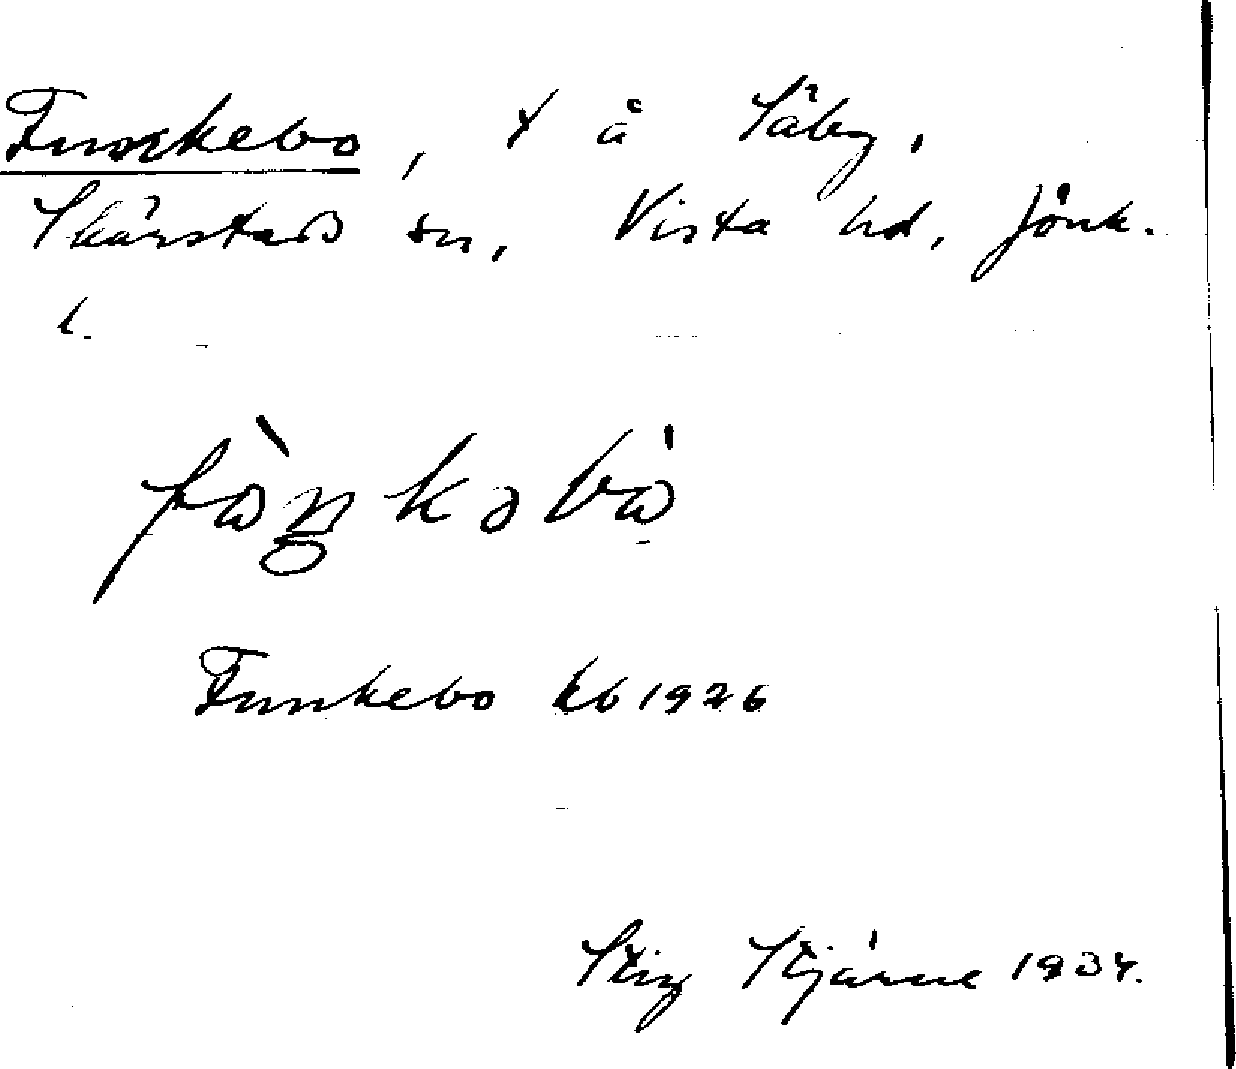 Funckebo, t å Säby,
Skärstad sn, Vista hd, Jönk.
l.
fòŋkəbo̍
Funkebo kb 1926
Stig Stjärne 1934.